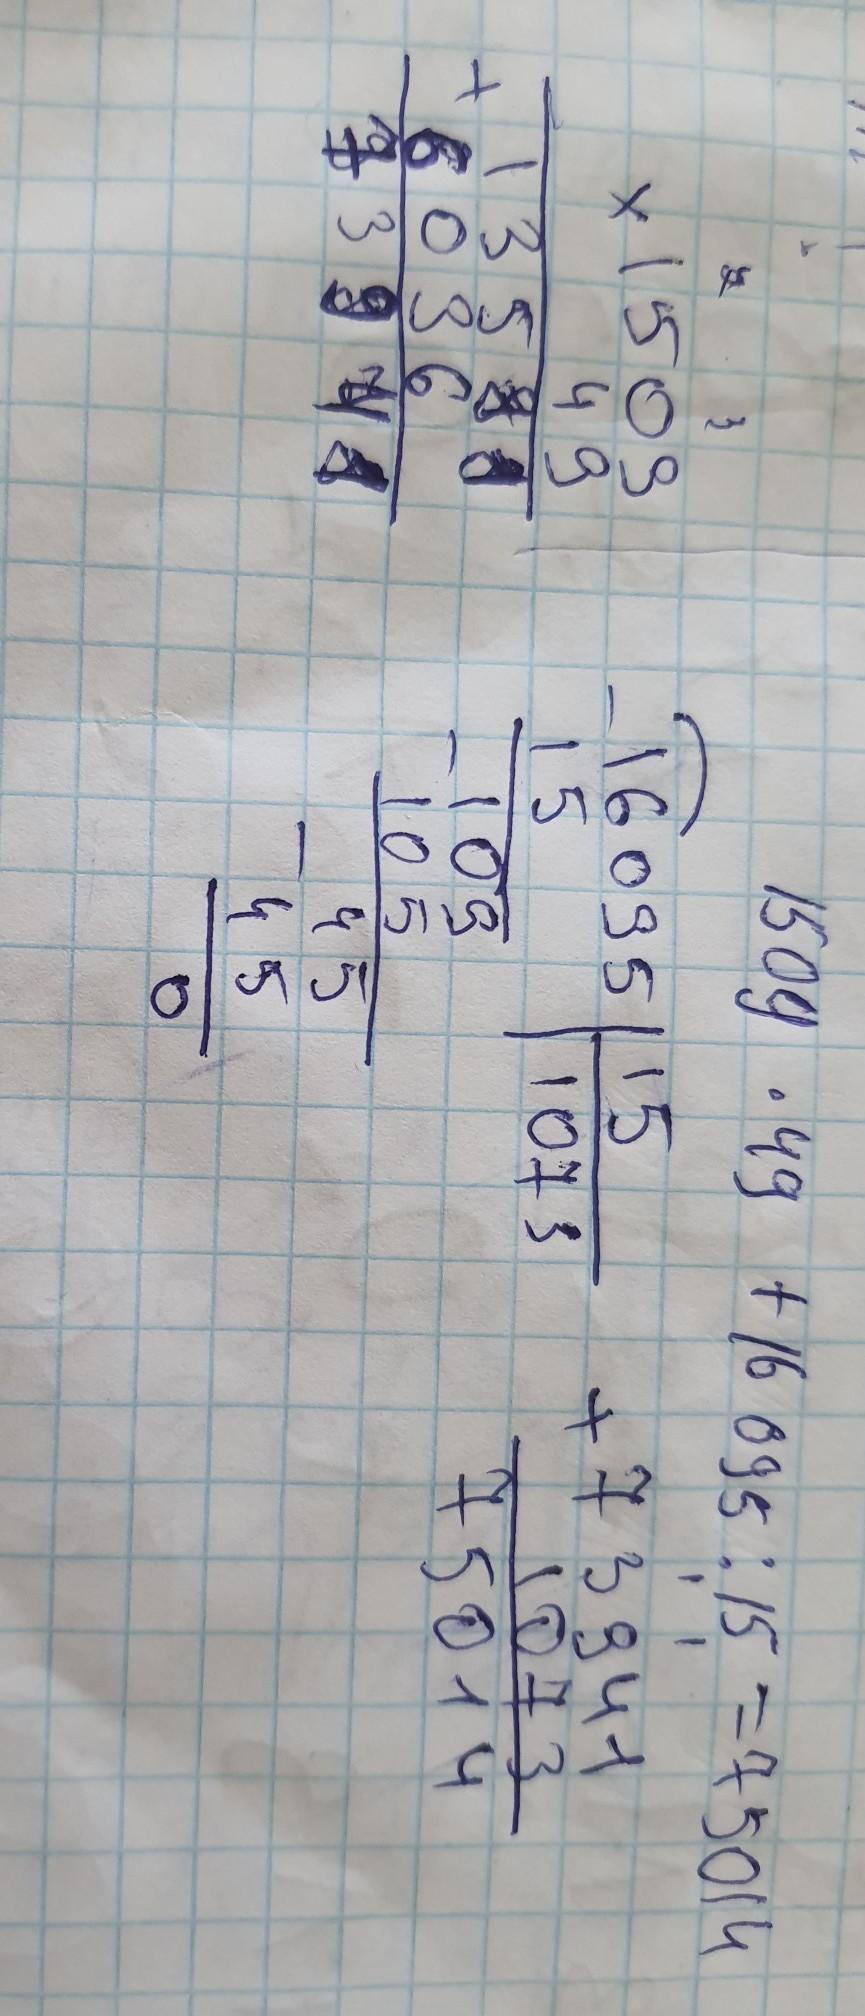 1509 · 49 + 16 095 : 15 = 75014
× 1509
49
13581
+ 6036
73941
- 16095 | 15
15 | 1073
- 109
105
- 45
45
0
+ 73941
1073
75014